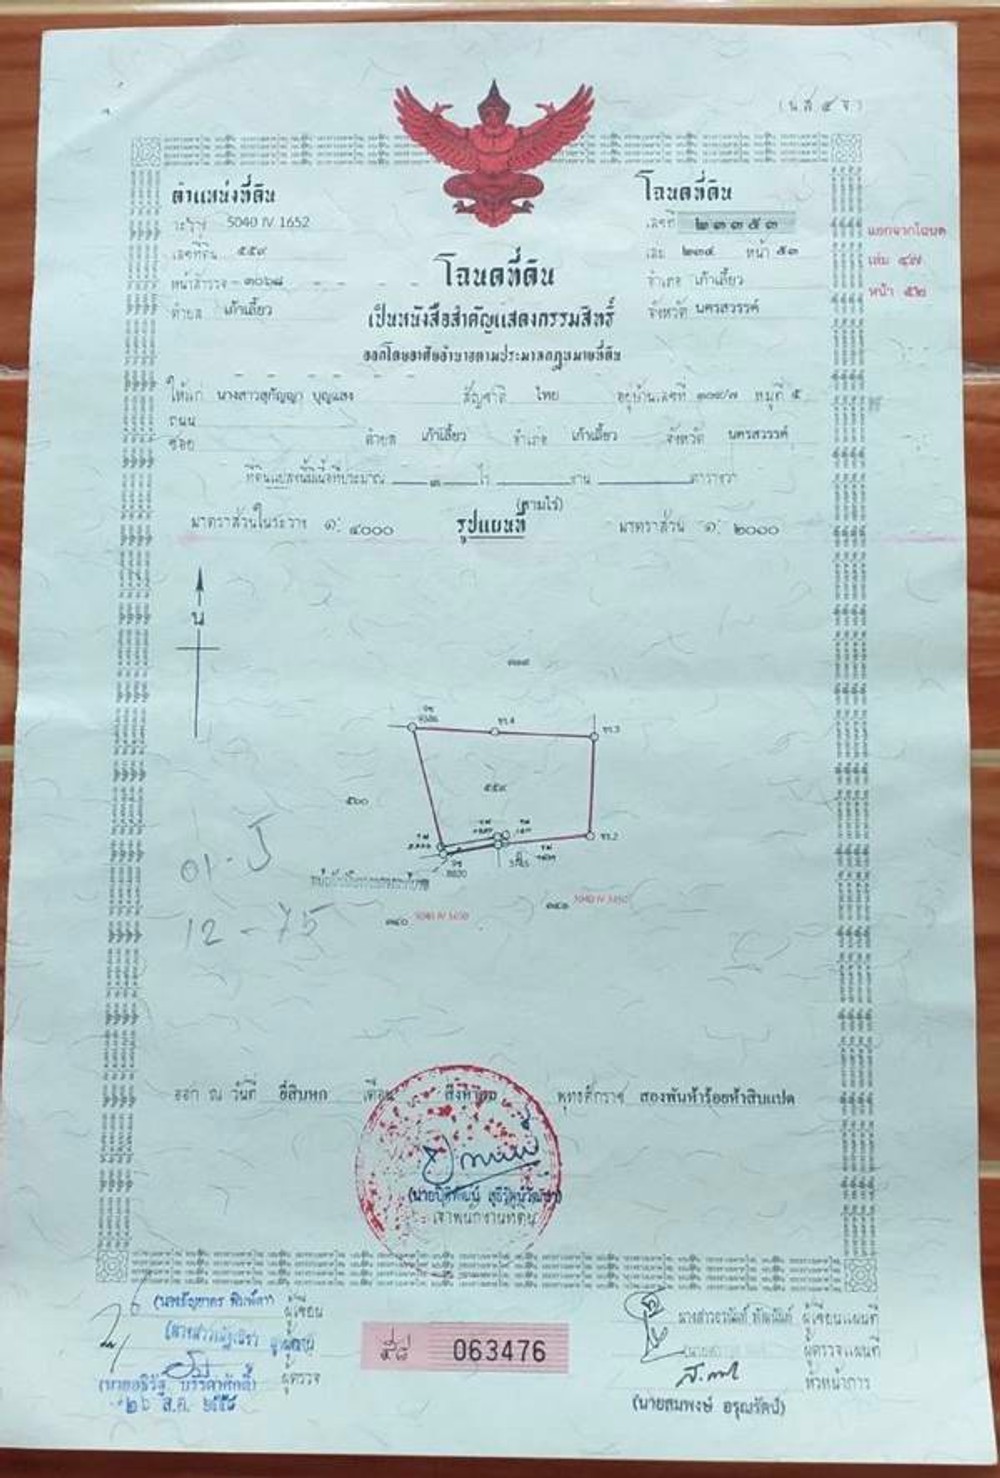 (น.ส.๔ จ.)
ตำแหน่งที่ดิน
ระวาง 5040 IV 1652
เลขที่ดิน ๕๕๙
หน้าสำรวจ ๓๐๖๘
ตำบล เก้าเลี้ยว
โฉนดที่ดิน
เลขที่ ๒๓๓๕๓
เล่ม ๒๓๔ หน้า ๕๓
อำเภอ เก้าเลี้ยว
จังหวัด นครสวรรค์
แยกจากโฉนด
เล่ม ๔๗
หน้า ๕๒
โฉนดที่ดิน
เป็นหนังสือสำคัญแสดงกรรมสิทธิ์
ออกโดยอาศัยอำนาจตามประมวลกฎหมายที่ดิน
ให้แก่ นางสาวสุกัญญา บุญแสง สัญชาติ ไทย อยู่บ้านเลขที่ หมู่ที่ ๕
ถนน
ซอย ตำบล เก้าเลี้ยว อำเภอ เก้าเลี้ยว จังหวัด นครสวรรค์
ที่ดินแปลงนี้มีเนื้อที่ประมาณ ๓ ไร่ งาน ตารางวา
(สามไร่)
มาตราส่วนในระวาง ๑: ๔๐๐๐ รูปแผนที่ มาตราส่วน ๑: ๒๐๐๐
น
ชร.4
ชร.3
๕๕๙
๕๖๐
ชร.2
01-J
12-75
5040 IV 1650
5040 IV 1650
ออก ณ วันที่ ยี่สิบหก เดือน สิงหาคม พุทธศักราช สองพันห้าร้อยห้าสิบแปด
เจ้าพนักงานที่ดิน
ผู้เขียน
ผู้ตรวจ
๒๖ ส.ค. ๒๕๕๘
๕๘ 063476
ผู้เขียนแผนที่
ผู้ตรวจแผนที่
หัวหน้าการ
(นายสมพงษ์ อรุณรัตน์)